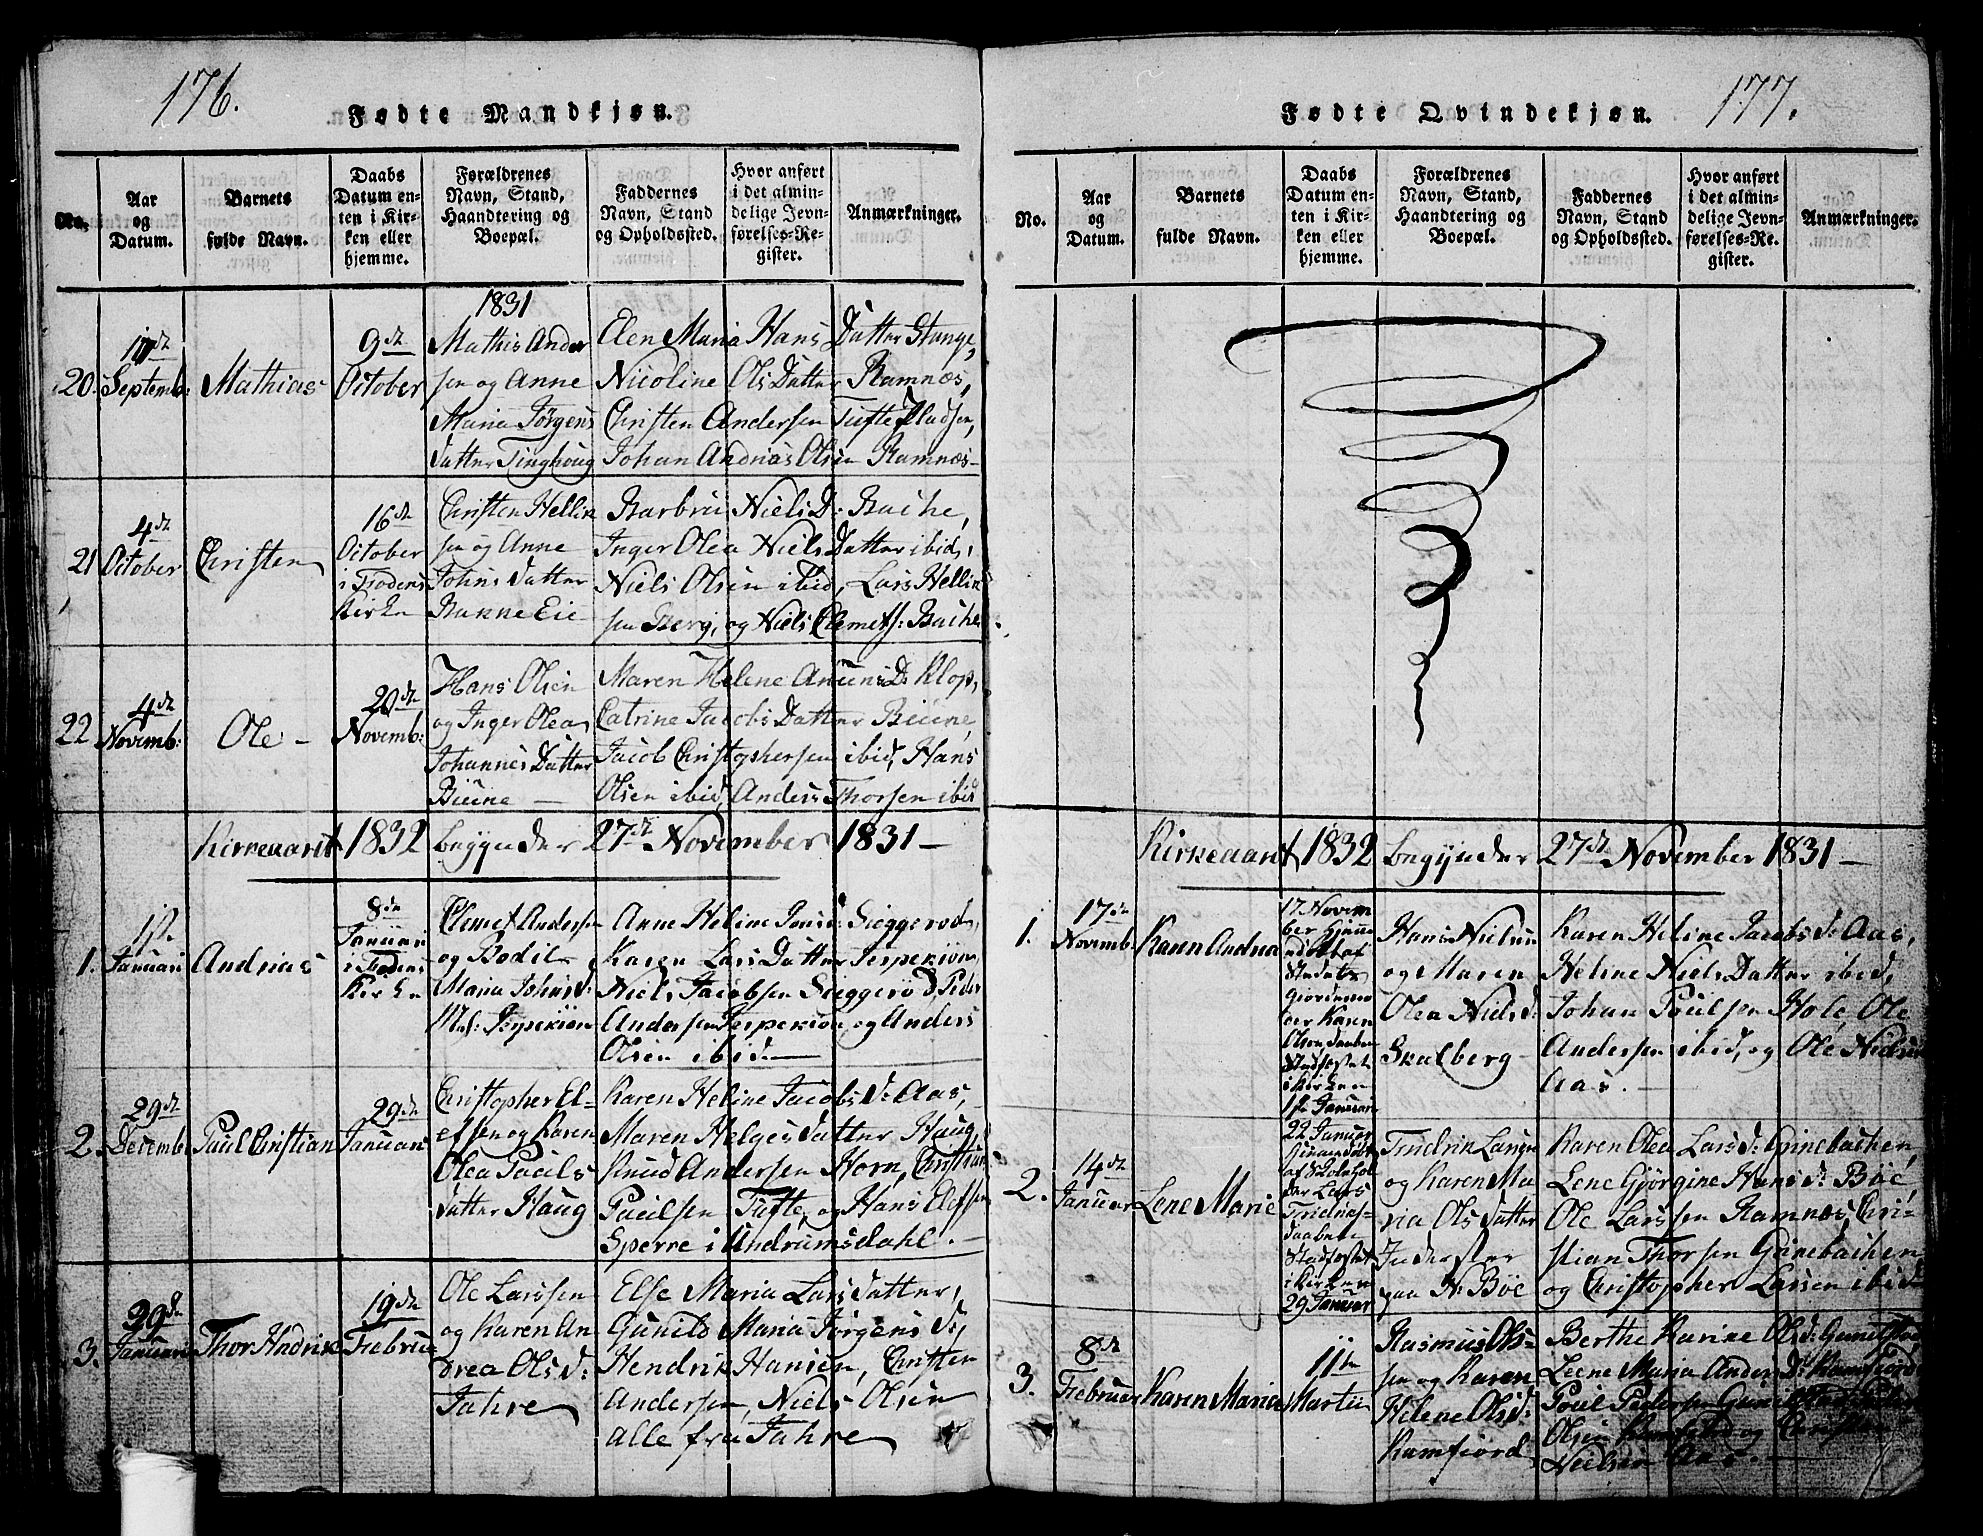 176.
Fødte Mandkjøn.
No.
Aar
og
Datum.
Barnets
fulde Navn.
Daabs
Datum en-
ten i Kir-
ken eller
hjemme.
Forældrenes
Navn, Stand,
Haandtering og
Boepæl.
Faddernes
Navn, Stand
og Opholdssted.
Hvor anført
i det almin-
delige Jevn-
førelses-Re-
gister.
Anmærkninger.
1831
20.
Septemb:
Mathias
9de
October
Mathis Ander
sen og Anne
Maria Jørgens
Datter Tinghoug
Elen Maria Hans Datter Stange,
Nicoline Ols Datter Ramnæs,
Christen Andersen Tufte Pladsen,
Johan Andrias Olsen Ramnæs-
21
4de
October
Christen
16de
October
i Frodens
Kirke
Christen Hellik
sen og Anne
Johns Datter
Bakke Eie
Barbru Niels D: Bache,
Inger Olea Niels Datter ibid,
Niels Olsen ibid, Lars Hellik
sen Berg, og Niels Clemets: Bache
22
4de
Novemb:
Ole -
20de
Novemb:
Hans Olsen
og Inger Olea
Johannes Datter
Biune -
Maren Helene D: Klop,
Catrine Jacobs Datter Biune,
Jacob Christophersen ibid, Hans
Olsen ibid, Anders Thorsen ibid
Kirkeaaret 1832 begynder 27de November 1831 -
1.
1ste
Januari
Andrias
8de
Januari
i Frodens
Kirken
Clemet Andersen
og Bodil
Maria Johnsd:
Jesperiøn
Anne Heline Jonsd: Sieggerød,
Karen Lars Datter Jesperiøn,
Niels Jacobsen Sieggerød, Peder
Andersen Jesperiøn og Anders
Olsen ibid -
2.
29de
Decemb:
Paul Christian
29de
Januari
Christopher El-
efsen og Karen
Olea Pauls
Datter Haug
Karen Heline Jacobs d: Aas,
Maren Helges Datter Haug
Knud Andersen Horn, Christian
Paulsen Tufte, og Hans Elefsen
Sperre i Undrumsdahl. -
3.
29de
Januari
Thor Hndrik
19de
Februar
Ole Larssen
og Karen An
drea Ols d:
Jahre
Else Maria Lars datter,
Gunild Maria Jørgens d,
Hendrik Hansen, Christen
Andersen, Niels Olsen
alle fra Jahre
177.
Fødte Qvindekjøn.
No.
Aar
og
Datum.
Barnets
fulde Navn.
Daabs
Datum en-
ten i Kir-
ken eller
hjemme.
Forældrenes
Navn, Stand,
Haandtering og
Boepæl.
Faddernes
Navn, Stand
og Opholdssted.
Hvor anført
i det almin-
delige Jevn-
førelses-Re-
gister.
Anmærkninger.
Kirkeaaret 1832 begynder 27de November 1831 -
1.
17de
Novemb:
Karen Andrea
17 Novem
ber hjem
døbt af
Giordemo
der Karen
Olsen Daaben
Stadfæstet
i Kirken
1ste Januari
Hans Nielsen
og Maren
Olea Nielsd:
Skalberg
Karen Heline Jacobs d: Aas,
Heline Niels Datter ibid,
Johan Poulsen Hole, Ole
Andersen ibid, og Ole Nielsen
Aas. -
2.
14de
Januar
Lene Marie
22 Januar
hjemmedøbt
af Skolehol
der Lars
Fridrics-
Daaben
Stadfæstet
i Kirken
29 Januar
Fridrik Larsen
og Karen Ma
ria Ols Datter
Inderster
paa N. Bøe
Karen Olea Lars d: Grinebachen,
Lene Gjørgine Hans d: Bøe
Ole Larssen Ramnæs, Chri-
stian Thorsen Grinebachen
og Christopher Larsen ibid
3.
8de
Februar
Karen Maria
11te
Martii
Rasmus Ols-
sen og Karen
Helene Olsd:
Ramfiord
Berthe Karine Olsd: Gunestad,
Leene Maria Anders D: Ramfiord
Poul Pedersen
Olsen Ramfiord og Christen
Nielsen Aas. -